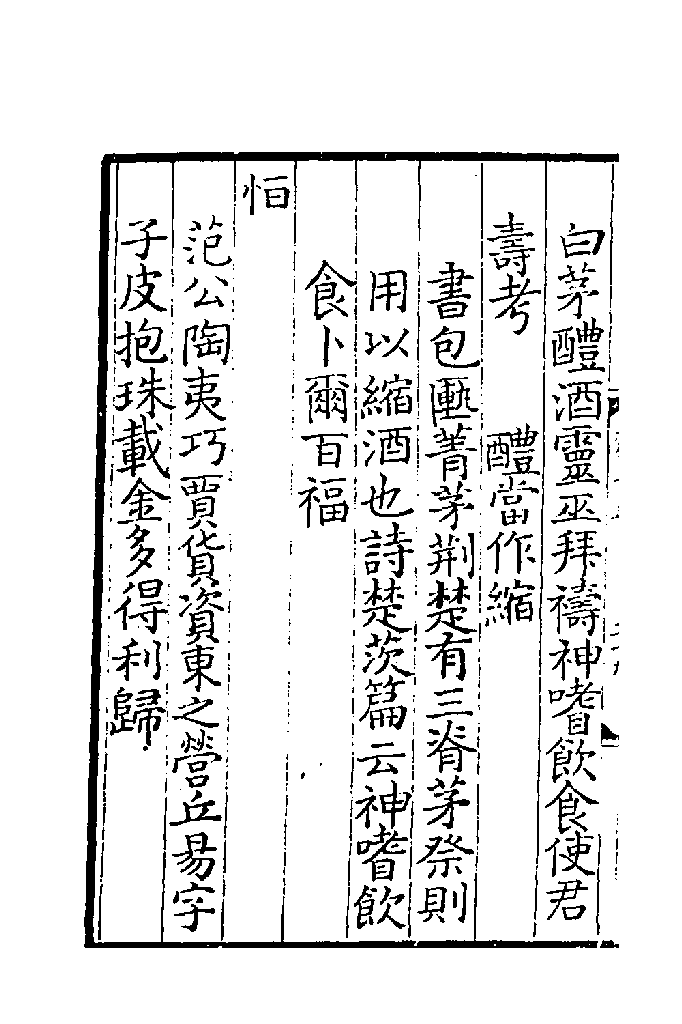 白茅醴酒靈巫拜禱神嗜飲食使君
壽考　醴當作縮
書包匭菁茅荆楚有三脊茅祭則
用以縮酒也詩楚茨篇云神嗜飲
食卜爾百福
恒
范公陶夷巧賈貨資東之營丘易字
子皮抱珠載金多得利歸